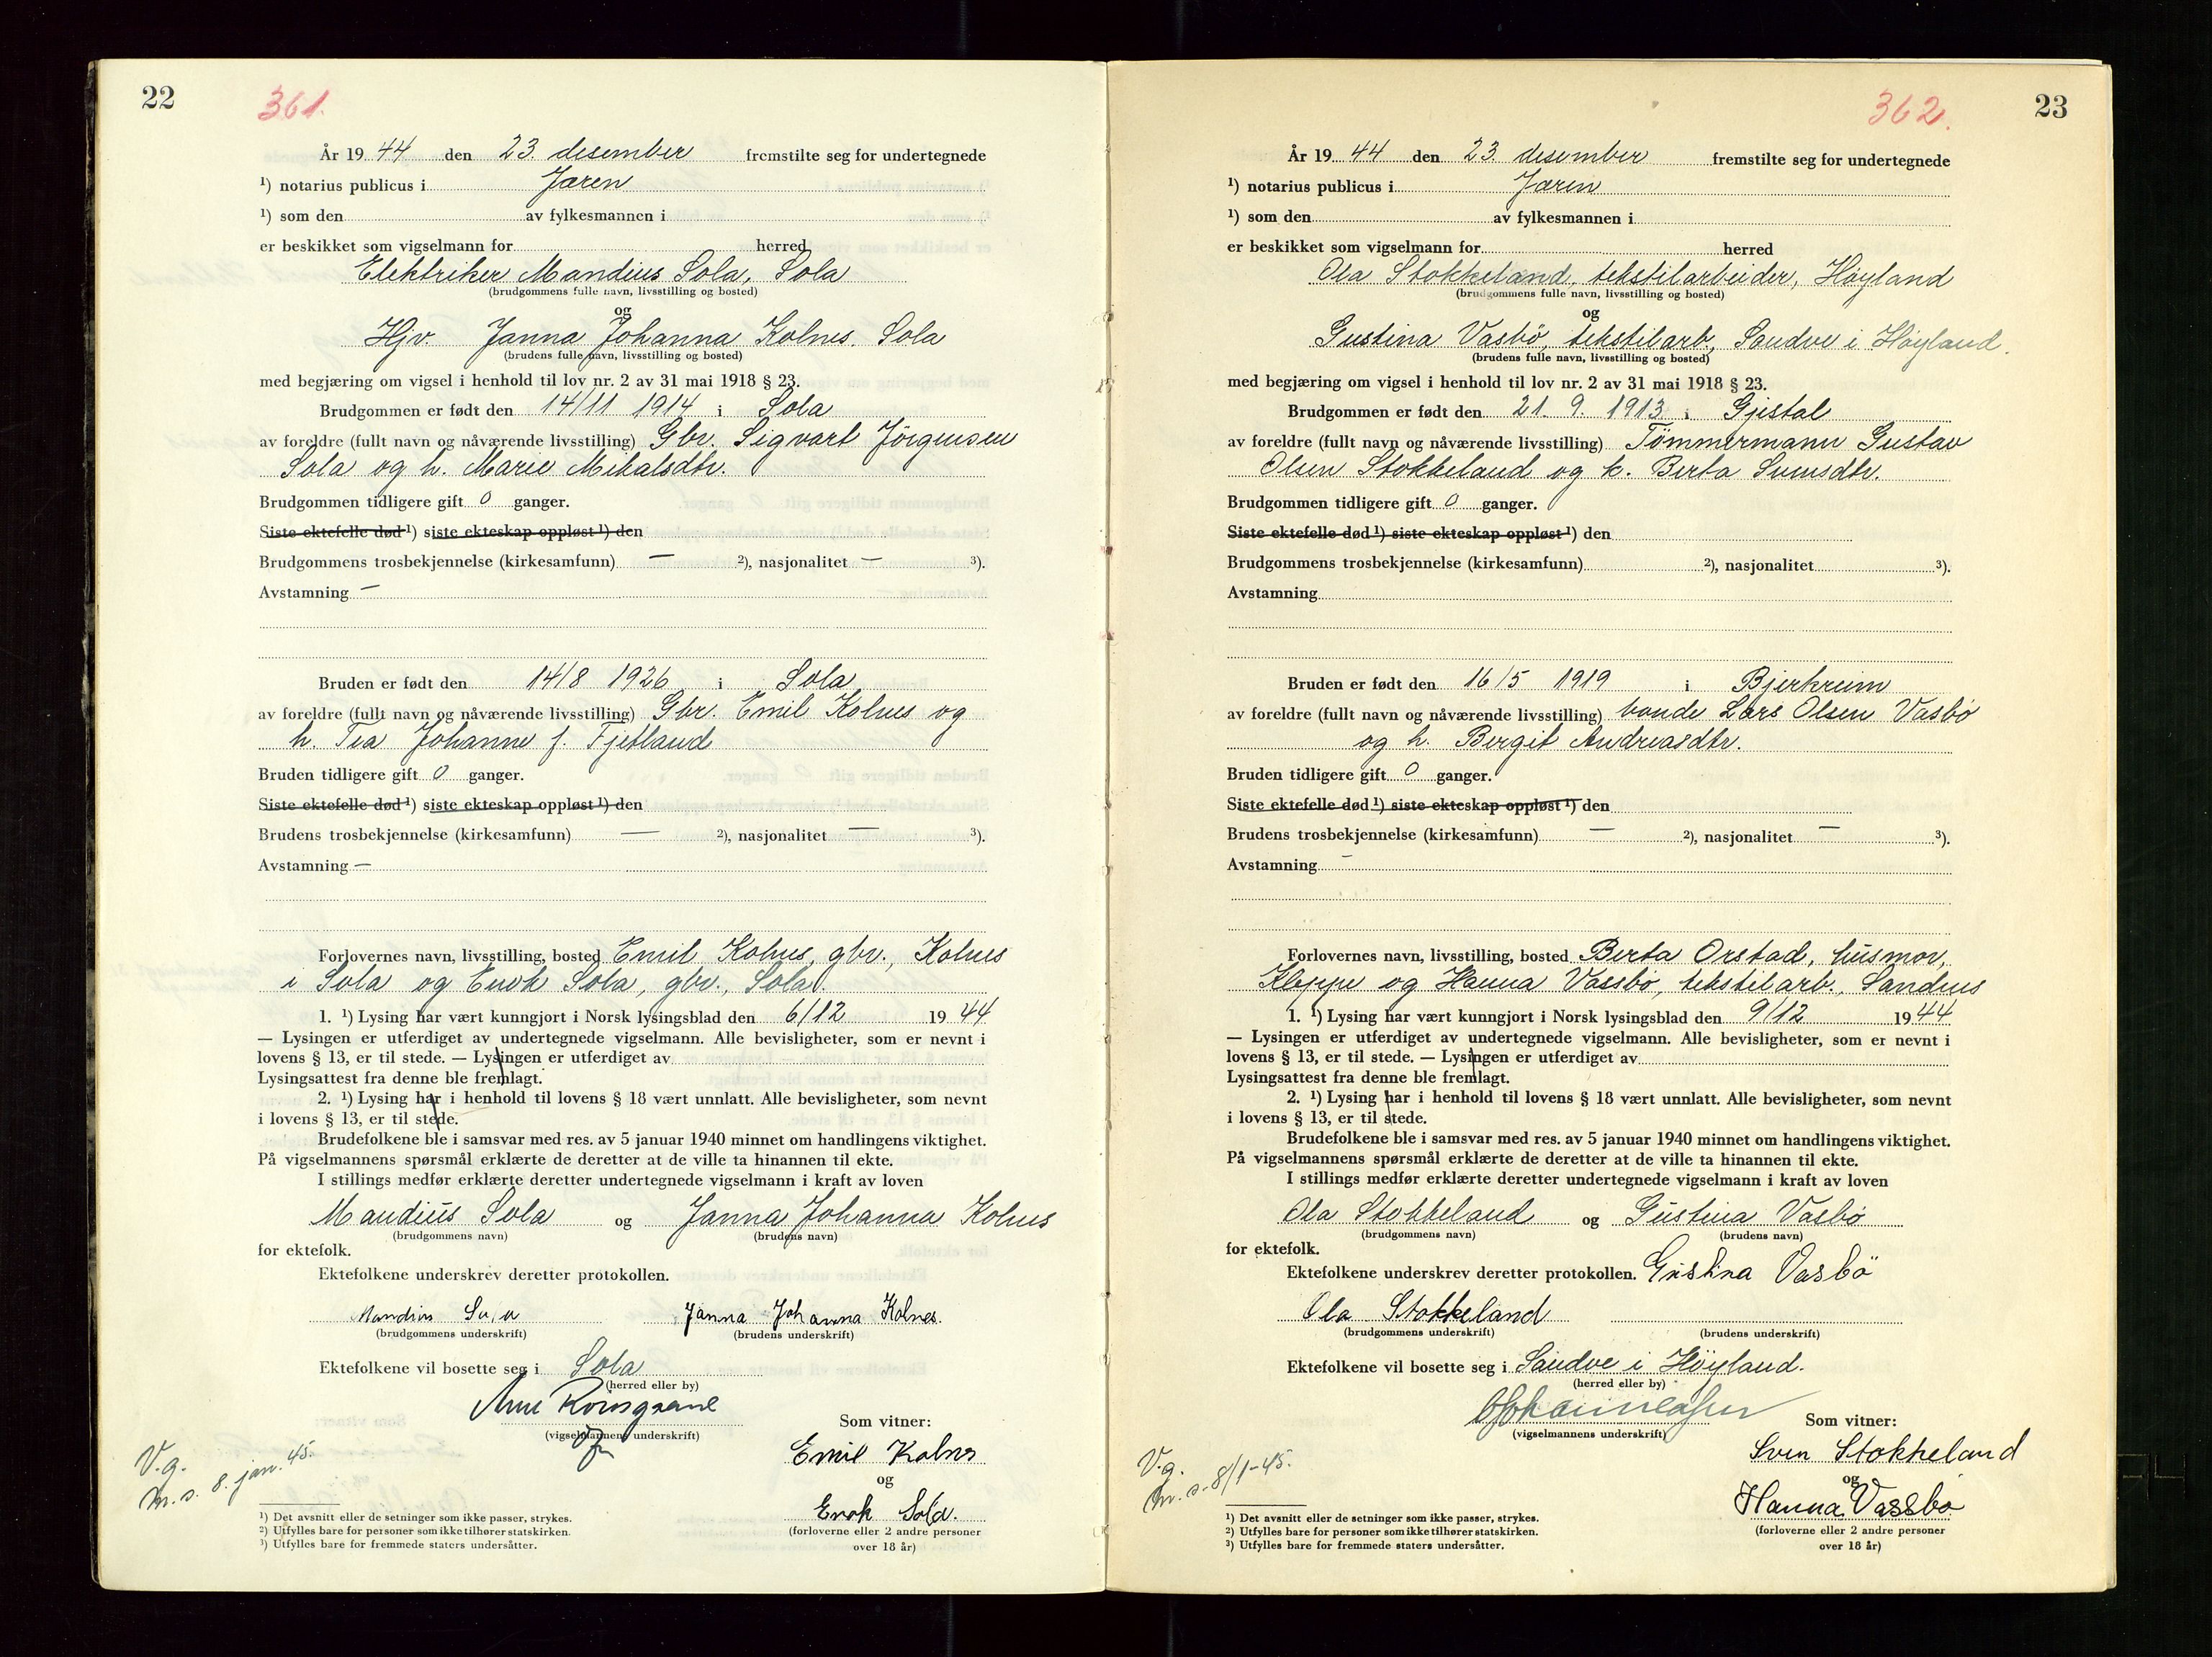 22
361.
År 1944 den 23. desember fremstilte seg for undertegnede
¹) notarius publicus i Jæren
¹) som den av fylkesmannen i
er beskikket som vigselmann for herred
Elektriker Mandius Sola, Sola
(brudgommens fulle navn, livsstilling og bosted)
og
Hjv. Janna Johanna Kolnes. Sola
(brudens fulle navn, livsstilling og bosted)
med begjæring om vigsel i henhold til lov nr. 2 av 31 mai 1918 § 23.
Brudgommen er født den 14/11 1914 i Sola
av foreldre (fullt navn og nåværende livsstilling) Gbr. Sigvart Jörgensen
Sola og h. Marie Mikalsdtr.
Brudgommen tidligere gift 0 ganger.
Siste ektefelle død ¹) siste ekteskap oppløst ¹) den
Brudgommens trosbekjennelse (kirkesamfunn) — ²), nasjonalitet — ³).
Avstamning —
Bruden er født den 14/8 1926 i Sola
av foreldre (fullt navn og nåværende livsstilling) Gbr. Emil Kolnes og
h. Tea Johanne f. Fjetland
Bruden tidligere gift 0 ganger.
Siste ektefelle død ¹) siste ekteskap oppløst ¹) den
Brudens trosbekjennelse (kirkesamfunn) — ²), nasjonalitet — ³).
Avstamning —
Forlovernes navn, livsstilling, bosted Emil Kolnes, gbr., Kolnes
i Sola og Enok Sola, gbr., Sola.
1. ¹) Lysing har vært kunngjort i Norsk lysingsblad den 6/12 1944
— Lysingen er utferdiget av undertegnede vigselmann. Alle bevisligheter, som er nevnt i
lovens § 13, er til stede. — Lysingen er utferdiget av
Lysingsattest fra denne ble fremlagt.
2. ¹) Lysing har i henhold til lovens § 18 vært unnlatt. Alle bevisligheter, som nevnt
i lovens § 13, er til stede.
Brudefolkene ble i samsvar med res. av 5 januar 1940 minnet om handlingens viktighet.
På vigselmannens spørsmål erklærte de deretter at de ville ta hinannen til ekte.
I stillings medfør erklærte deretter undertegnede vigselmann i kraft av loven
Mandius Sola og Janna Johanna Kolnes
(brudgommens navn) (brudens navn)
for ektefolk.
Ektefolkene underskrev deretter protokollen.
Mandius Sola Janna Johanna Kolnes.
(brudgommens underskrift) (brudens underskrift)
Ektefolkene vil bosette seg i Sola
(herred eller by)
(vigselmannens underskrift)
Som vitner:
Emil Kolnes
og
Enok Sola.
(forloverne eller 2 andre personer
over 18 år)
V.g.
m.s. 8. jan. 45.
¹) Det avsnitt eller de setninger som ikke passer, strykes.
²) Utfylles bare for personer som ikke tilhører statskirken.
³) Utfylles bare for fremmede staters undersåtter.
23
362.
År 1944 den 23. desember fremstilte seg for undertegnede
¹) notarius publicus i Jæren
¹) som den av fylkesmannen i
er beskikket som vigselmann for herred
Ola Stokkeland, tekstilarbeider, Høyland
(brudgommens fulle navn, livsstilling og bosted)
og
Gustina Vasbö, tekstilarb, Sandve i Høyland.
(brudens fulle navn, livsstilling og bosted)
med begjæring om vigsel i henhold til lov nr. 2 av 31 mai 1918 § 23.
Brudgommen er født den 21. 9. 1913 i Gjestal
av foreldre (fullt navn og nåværende livsstilling) Tömmermann Gustav
Olsen Stokkeland og h. Berta Svensdtr.
Brudgommen tidligere gift 0 ganger.
Siste ektefelle død ¹) siste ekteskap oppløst ¹) den
Brudgommens trosbekjennelse (kirkesamfunn) ²), nasjonalitet ³).
Avstamning
Bruden er født den 16/5 1919 i Bjerkreim
av foreldre (fullt navn og nåværende livsstilling) bonde Lars Olsen Vasbö
og h. Bergit Andreasdtr.
Bruden tidligere gift 0 ganger.
Siste ektefelle død ¹) siste ekteskap oppløst ¹) den
Brudens trosbekjennelse (kirkesamfunn) — ²), nasjonalitet — ³).
Avstamning -
Forlovernes navn, livsstilling, bosted Berta Orstad, husmor,
Kleppe og Hanna Vassbö, tekstilarb., Sandnes
1. ¹) Lysing har vært kunngjort i Norsk lysingsblad den 9/12 1944
— Lysingen er utferdiget av undertegnede vigselmann. Alle bevisligheter, som er nevnt i
lovens § 13, er til stede. — Lysingen er utferdiget av
Lysingsattest fra denne ble fremlagt.
2. ¹) Lysing har i henhold til lovens § 18 vært unnlatt. Alle bevisligheter, som nevnt
i lovens § 13, er til stede.
Brudefolkene ble i samsvar med res. av 5 januar 1940 minnet om handlingens viktighet.
På vigselmannens spørsmål erklærte de deretter at de ville ta hinannen til ekte.
I stillings medfør erklærte deretter undertegnede vigselmann i kraft av loven
Ola Stokkeland og Gustina Vasbö
(brudgommens navn) (brudens navn)
for ektefolk.
Ektefolkene underskrev deretter protokollen. Gustina Vasbö
Ola Stokkeland
(brudgommens underskrift) (brudens underskrift)
Ektefolkene vil bosette seg i Sandve i Höyland.
(herred eller by)
(vigselmannens underskrift)
Som vitner:
Sven Stokkeland
og
Hanna Vassbö
(forloverne eller 2 andre personer
over 18 år)
V.g.
m.s. 8/1-45.
¹) Det avsnitt eller de setninger som ikke passer, strykes.
²) Utfylles bare for personer som ikke tilhører statskirken.
³) Utfylles bare for fremmede staters undersåtter.